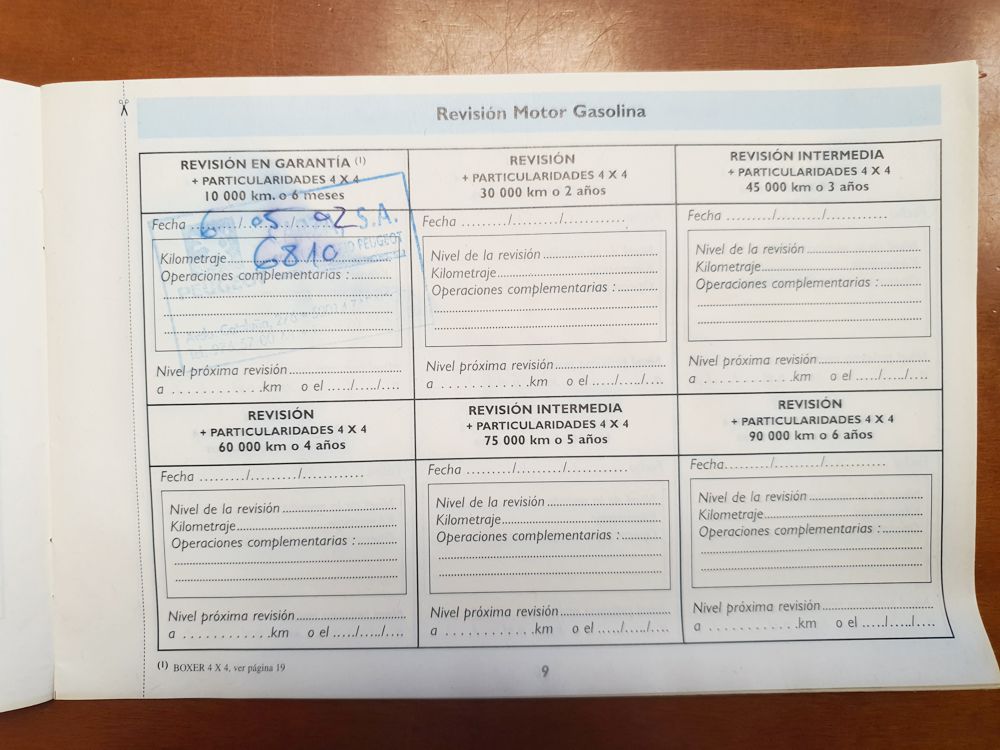 Revisión Motor Gasolina
REVISIÓN EN GARANTÍA (1)
+ PARTICULARIDADES 4 X 4
10 000 km. o 6 meses
Fecha ........./........./............
6 05 92
S.A.
PEUGEOT
Kilometraje..............................
6810
Operaciones complementarias : ............
PEUGEOT
Nivel próxima revisión..............................
a . . . . . . . . . . . .km o el ...../...../....
REVISIÓN
+ PARTICULARIDADES 4 X 4
30 000 km o 2 años
Fecha ........./........./............
Nivel de la revisión ..............................
Kilometraje..............................
Operaciones complementarias : ............
Nivel próxima revisión..............................
a . . . . . . . . . . . .km o el ...../...../....
REVISIÓN INTERMEDIA
+ PARTICULARIDADES 4 X 4
45 000 km o 3 años
Fecha ........./........./............
Nivel de la revisión ..............................
Kilometraje..............................
Operaciones complementarias : ............
Nivel próxima revisión..............................
a . . . . . . . . . . . .km o el ...../...../....
REVISIÓN
+ PARTICULARIDADES 4 X 4
60 000 km o 4 años
Fecha ........./........./............
Nivel de la revisión ..............................
Kilometraje..............................
Operaciones complementarias : ............
Nivel próxima revisión..............................
a . . . . . . . . . . . .km o el ...../...../....
REVISIÓN INTERMEDIA
+ PARTICULARIDADES 4 X 4
75 000 km o 5 años
Fecha ........./........./............
Nivel de la revisión ..............................
Kilometraje..............................
Operaciones complementarias : ............
Nivel próxima revisión..............................
a . . . . . . . . . . . .km o el ...../...../....
REVISIÓN
+ PARTICULARIDADES 4 X 4
90 000 km o 6 años
Fecha........./........./............
Nivel de la revisión ..............................
Kilometraje..............................
Operaciones complementarias : ............
Nivel próxima revisión..............................
a . . . . . . . . . . . .km o el ...../...../....
(1) BOXER 4 X 4, ver página 19
9